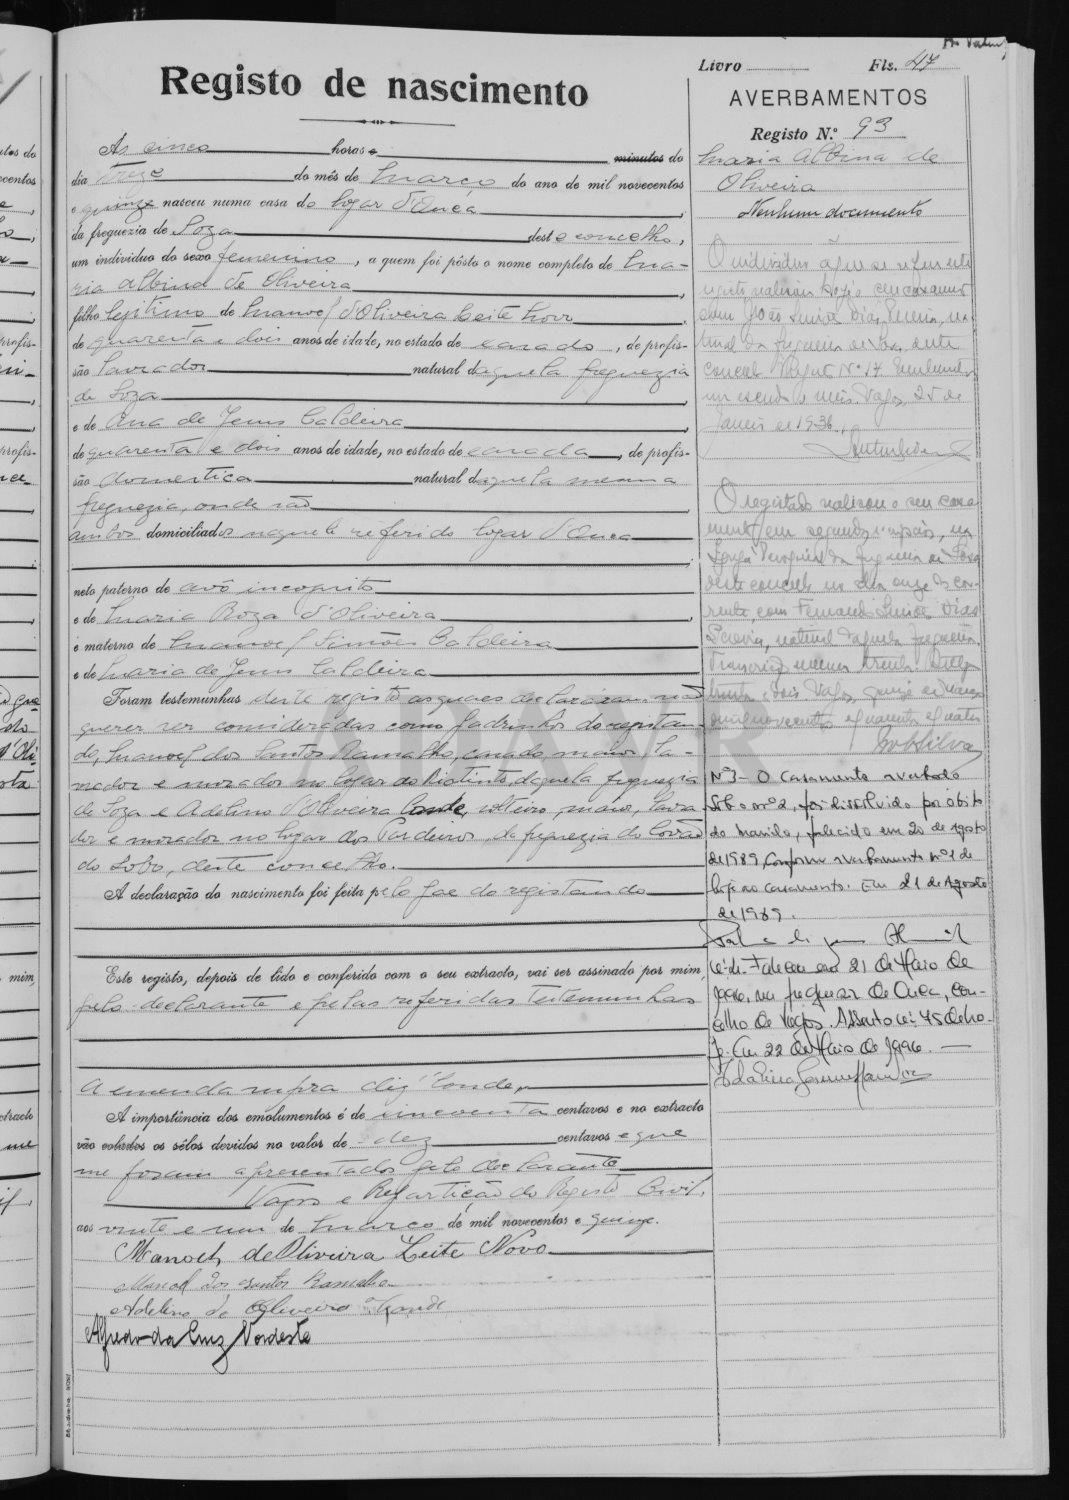 Livro Fls. 47
Registo de nascimento
AVERBAMENTOS
Registo N.º 93
Maria Albina de
Oliveira
Nenhum documento
Às cinco horas e minutos do
dia treze do mês de Março do ano de mil novecentos
e quinze nasceu numa casa do logar d'Ouca
da freguezia de Soza deste concelho,
um individuo do sexo femenino, a quem foi pôsto o nome completo de Ma-
ria Albina de Oliveira
filho legitimo de Manoel d'Oliveira Leite Novo
de quarenta e dois anos de idade, no estado de casado, de profis-
são lavrador natural daquela freguezia
de Soza
e de Ana de Jesus Caldeira
de quarenta e dois anos de idade, no estado de casada, de profis-
são domestica natural daquela mesma
freguezia, onde são
ambos domiciliados naquele referido logar d'Ouca
neto paterno de avô incognito
e de Maria Roza d'Oliveira
e materno de Manoel Simões Caldeira
e de Maria de Jesus Caldeira
Foram testemunhas deste registo as quaes declararam não
querer ser consideradas como padrinhos do registan-
do, Manoel dos Santos Ramalho, casado, maior, la-
vrador e morador no logar do daquela freguezia
de Soza e Adelino d'Oliveira Conde, solteiro, maior, lavra
dor e morador no logar dos Pardeiros, da freguezia do Covão
do Lobo, deste concelho.
A declaração do nascimento foi feita pelo pae do registando
Este registo, depois de lido e conferido com o seu extracto, vai ser assinado por mim,
pelo declarante e pelas referidas testemunhas
A emenda supra diz "Conde"
A importância dos emolumentos é de cincoenta centavos e no extracto
vão colados os sêlos devidos no valor de dez centavos e que
me foram apresentados pelo declarante
Vagos e Repartição do Registo Civil,
aos vinte e um de Março de mil novecentos e quinze.
Manoel de Oliveira Leite Novo
Manoel dos Santos Ramalho
Adelino de Oliveira Conde
Alfredo da Cruz Nordeste
O individuo a que se refere este
registo realizou hoje o seu casamento
com João Simões Dias Pereira, na
tural da freguezia de Soza, deste
concelho Registo Nº 17
Vagos, 25 de
Janeiro de 1936.
O registado realizou o seu casa
mento em segundas nupcias, na
Igreja Paroquial da freguesia de Soza
deste concelho no dia onze do cor-
rente, com Fernando Simões Dias
Pereira, natural daquela freguesia.
trinta e dois Vagos, quinze de Março
de mil novecentos e quarenta e quatro
Nº 3 - O casamento averbado
sob o nº 2, foi dissolvido por óbito
do marido, falecido em 20 de Agosto
de 1989, conforme averbamento nº 1 de
hoje ao casamento. Em 21 de Agosto
de 1989.
Faleceu em 21 de Maio de
1996, na freguesia de Ouca, con-
celho de Vagos. Assento nº 45 de ho-
je. Em 22 de Maio de 1996.